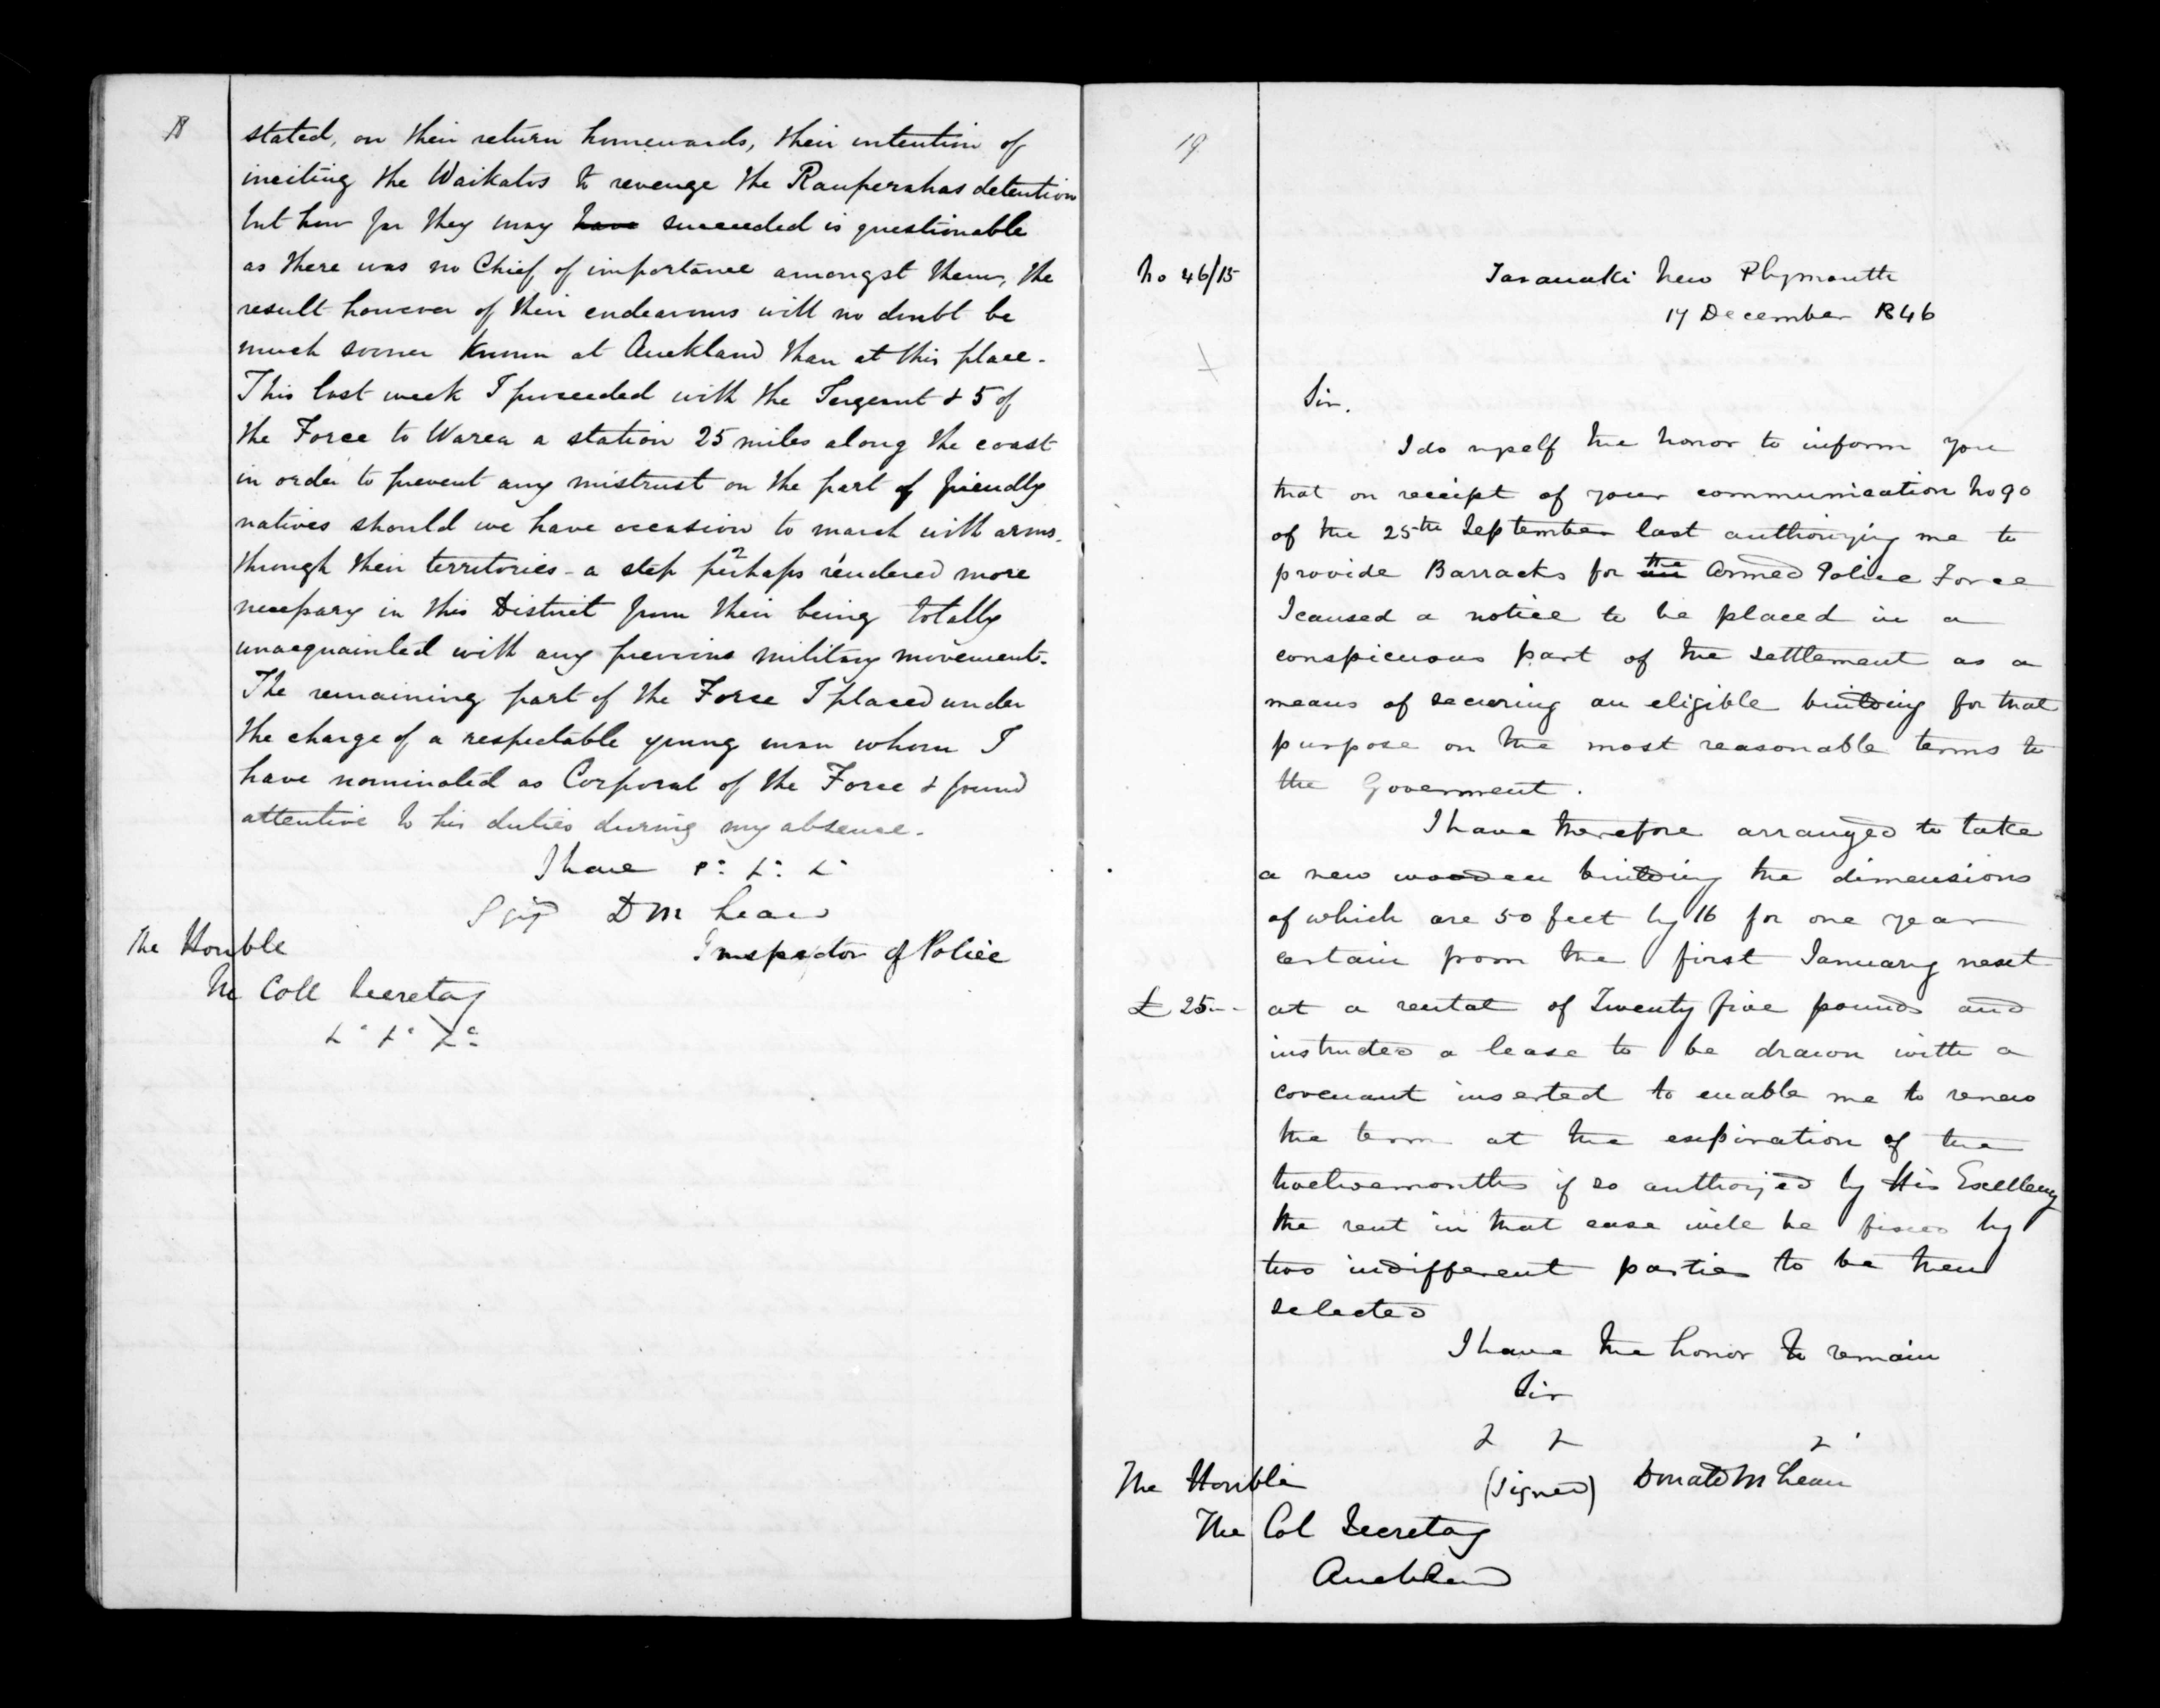 18
stated, on their return homewards, their intention of
inciting the Waikatos to revenge the Rauperahas detention
but how far they may have succeeded is questionable
as there was no Chief of importance amongst them, the
result however of their endeavours will no doubt be
much sooner known at Auckland than at this place.
This last week I proceeded with the Sergeant & 5 of
the Force to Warea a station 25 miles along the coast
in order to prevent any mistrust on the part of friendly
natives should we have occasion to march with arms
through their territories - a step perhaps rendered more
necessary in this District from their being totally
unacquainted with any previous military movements.
The remaining part of the Force I placed under
the charge of a respectable young man whom I
have nominated as Corporal of the Force & found
attentive to his duties during my absence.
I have &c &c &c
Sigd D M Lean
Inspector of Police
The Honble
The Coll Secretay
&c &c &c
19
No 46/15
Taranaki New Plymouth
17 December 1846
Sir.
I do myself the honor to inform you
that on receipt of your communication No 90
of the 25th September last authorizing me to
provide Barracks for an the Armed Police Force
I caused a notice to be placed in a
conspicuous part of the settlement as a
means of securing an eligible building for that
purpose on the most reasonable terms to
the Government.
I have therefore arranged to take
a new wooden building the dimensions
of which are 50 feet by 16 for one year
certain from the first January next
£ 25 - - at a rental of Twenty five pounds and
instructed a lease to be drawn with a
covenant inserted to enable me to renew
the term at the expiration of the
twelvemonths if so authorized by His Excellency
the rent in that case will be fixed by
two indifferent parties to be then
selected
I have the honor to remain
Sir
& & &
(Signed) Donald M Lean
The Honble
The Col Secretay
Auckland